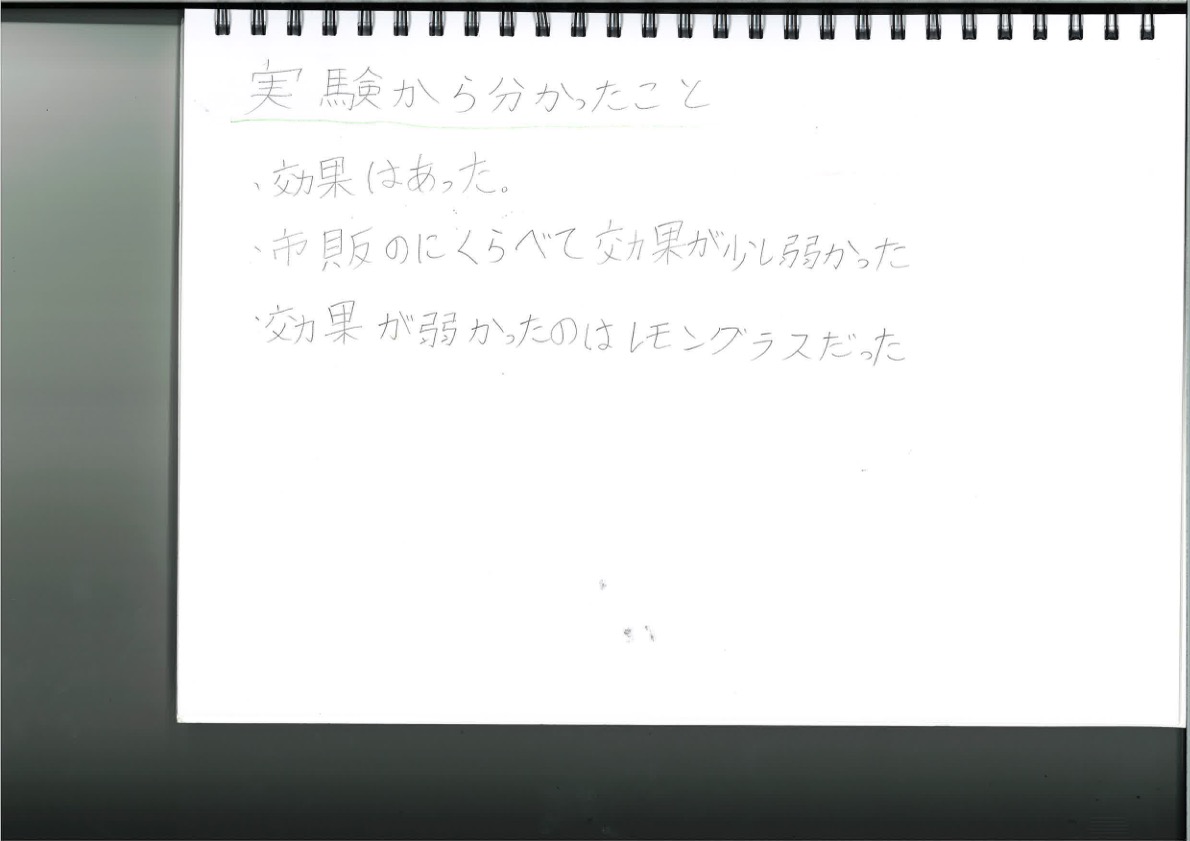 実験から分かったこと
・効果はあった。
・市販のにくらべて効果が少し弱かった
・効果が弱かったのはレモングラスだった